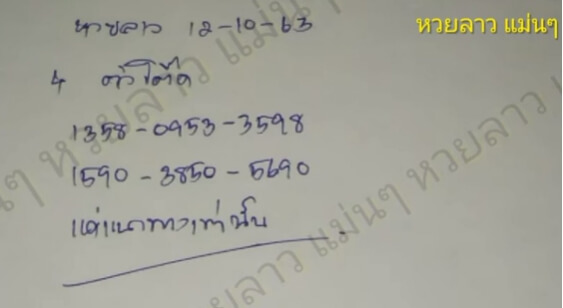 หวยลาว แม่นๆ
หวยลาว 12-10-63
4 ตัวโต๊ด
1358-0953-3598
1590-3850-5690
แค่แนวทางเท่านั้น
หวยลาว แม่นๆ หวยลาว แม่นๆ
หวยลาว แม่นๆ หวยลาว แม่นๆ